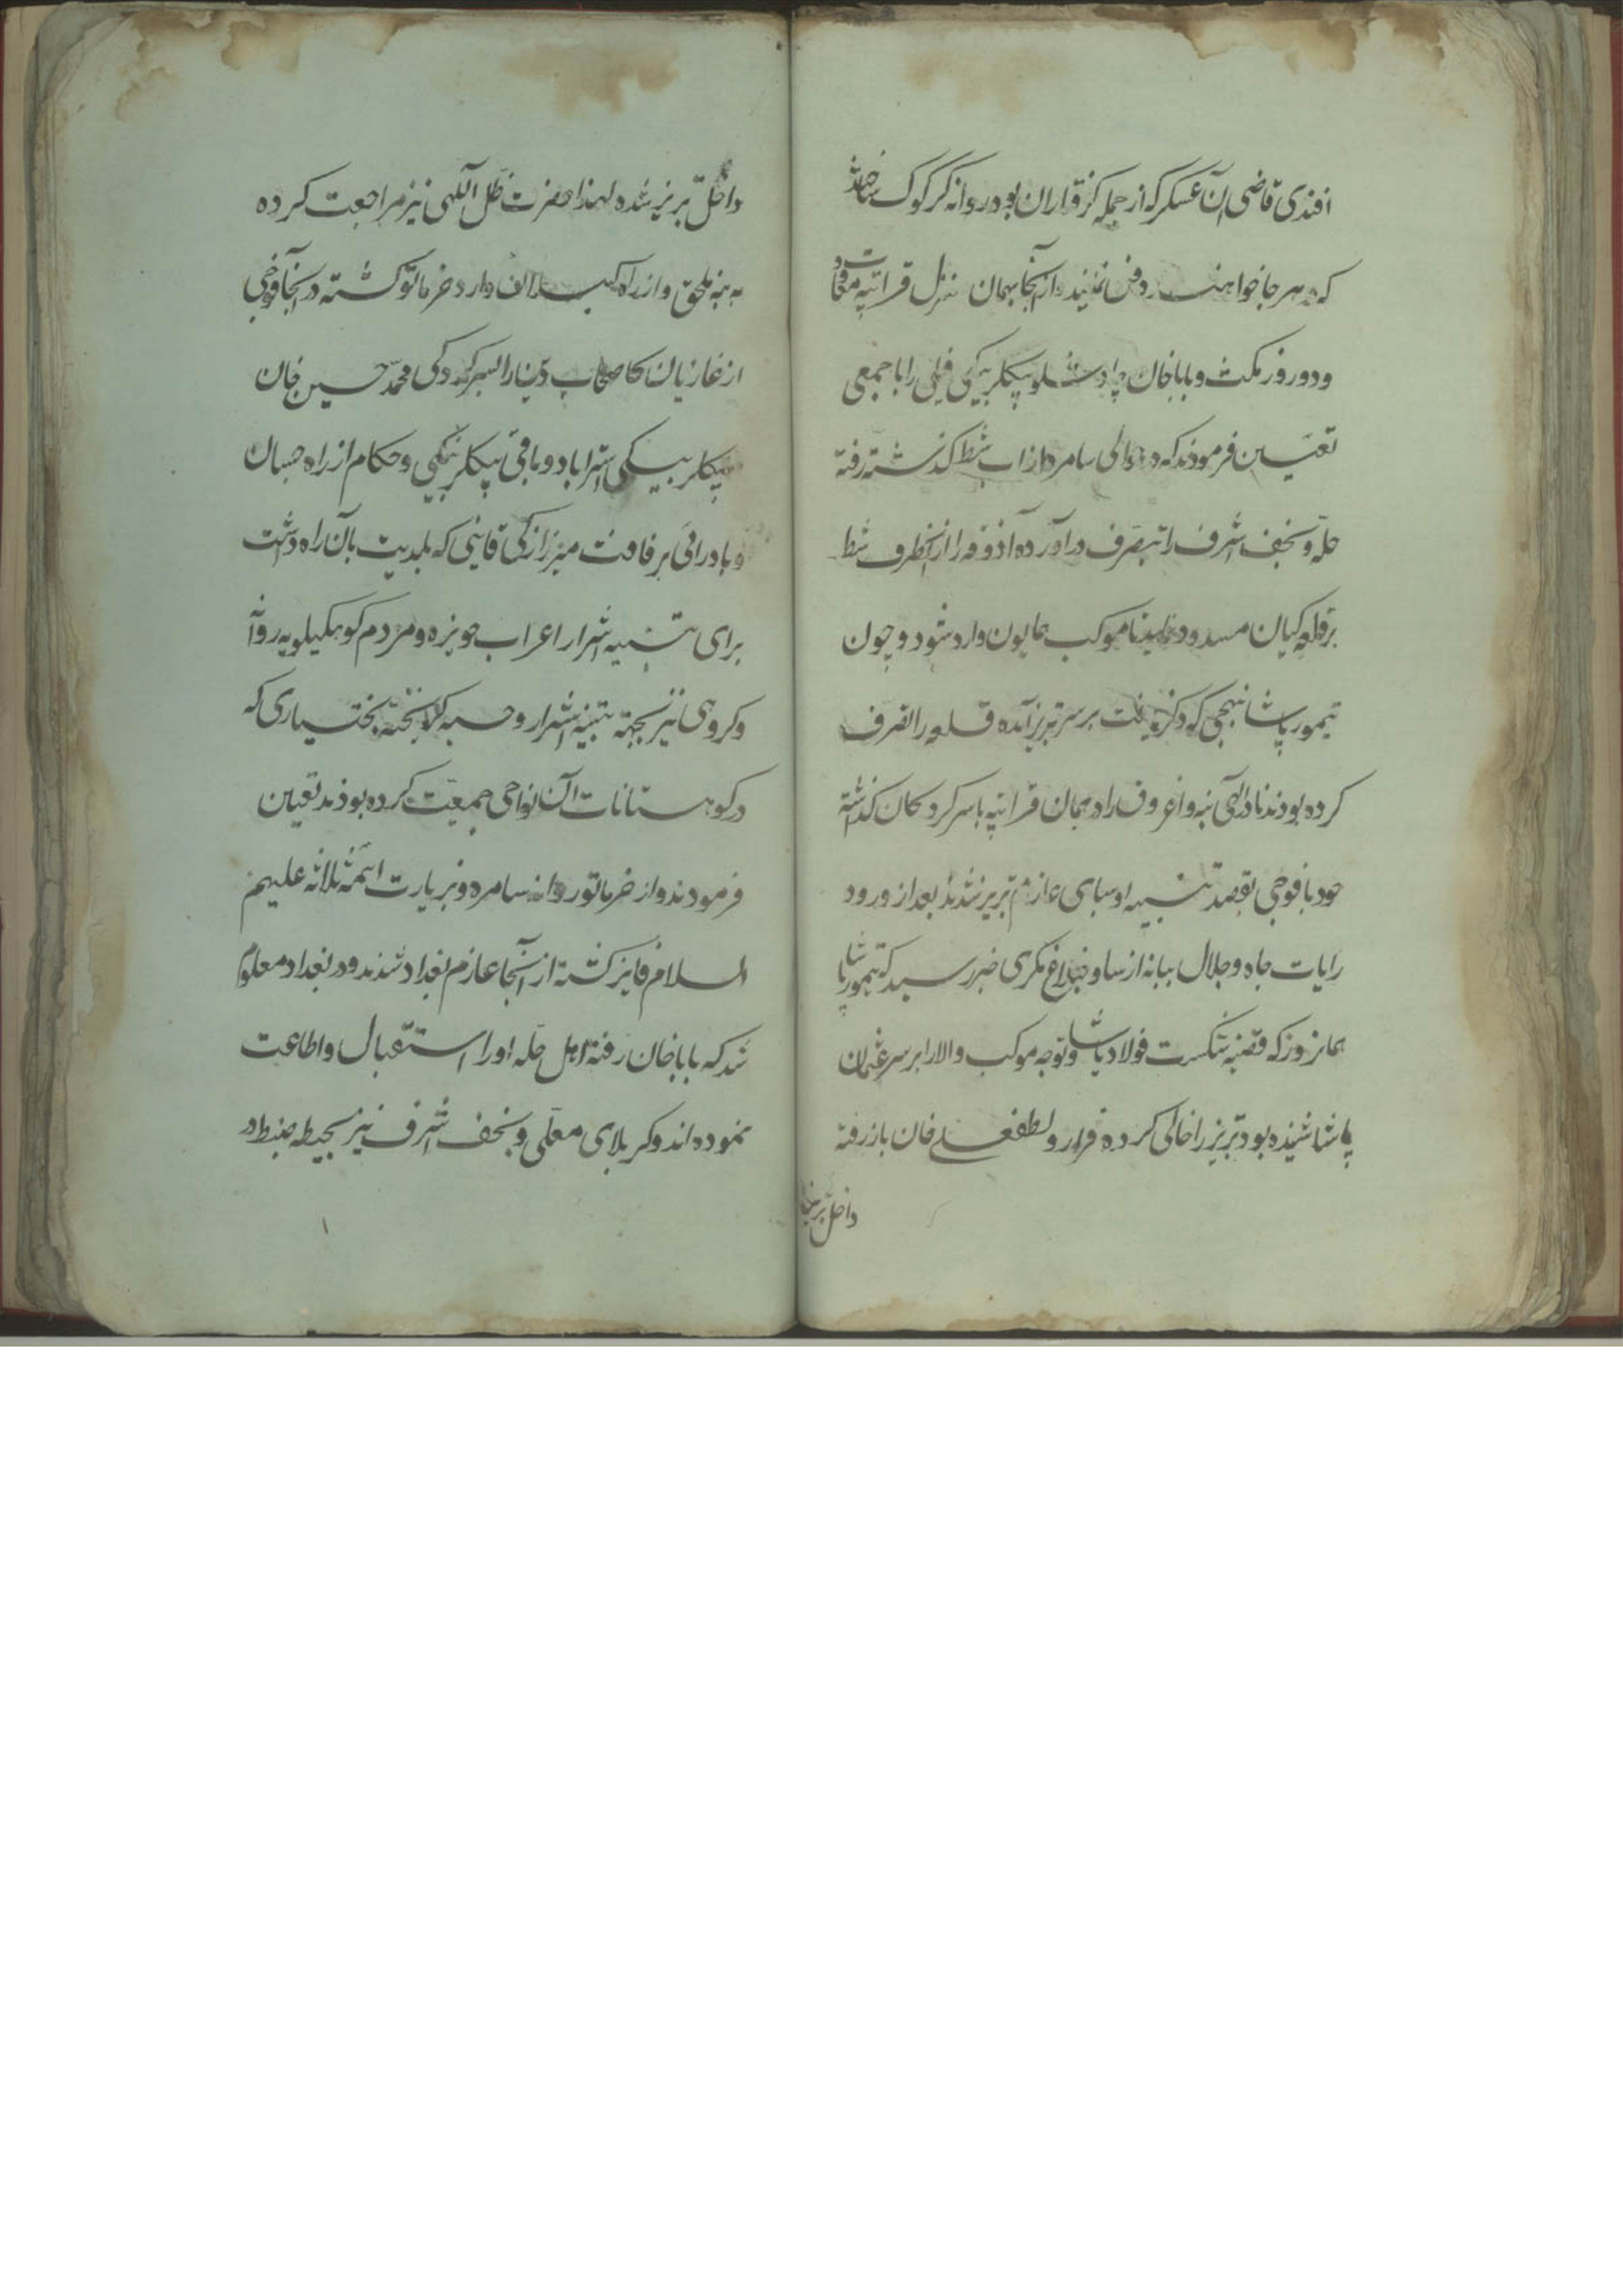 افندی قاضی آن عسکر که از جمله گرفتاران بود روانه کرکوک ساختند
که هر جا خواهند دفن نمایند و از آنجا بهمان منزل قراتپه معاودت
و دو روز مکث و باباخان چاوشلو بیکلربیکی فیلی را با جمعی
تعیین فرمودند که در حوالی سامره از آب شط گذشته رفته
حله و نجف اشرف را بتصرف درآورده آذوقه را از آنطرف شط
بر قلعه کیان مسدود نمایند تا موکب همایون وارد شود و چون
تیمور پاشا بنهجی که ذکر یافت بر سر تبریز آمده قلعه را تصرف
کرده بودند نادرالهی بنه و اغروق را در همان قراتپه با سرکردکان گذاشته
خود با فوجی بقصد تنبیه او سبای عازم تبریز شدند بعد از ورود
رایات جاه و جلال ببانه از ساوخبلاغ مکری خبر رسید که تیمور پاشا
همانروز که قضیه شکست فولاد پاشا و توجه موکب والا را بر سر عثمان
پاشا شنیده بود تبریز را خالی کرده فرار و لطفعلی خان باز رفته
داخل تبریز
داخل تبریز شده لهذا حضرت ظل اللهی نیز مراجعت کرده
به بنه ملحق و از راه وارد خرماتو گشته در آنجا فوجی
از غازیان را بسرکردگی محمد حسین خان
بیکلربیکی استراباد و باقی بیکلربیکی و حکام از راه جسان
و بادرائی برفاقت میرزا زکی قاینی که بلدیت بآن راه داشت
برای تنبیه اشرار اعراب حویزه و مردم کوهکیلویه روانه
و کروهی نیز بجهة تنبیه اشرار وحسیه بختیاری که
در کوهستانات آن نواحی جمعیت کرده بودند تعیین
فرمودند و از خرماتو روانه سامره و بزیارت ائمه ثلاثه علیهم
السلام فایز گشته از آنجا عازم بغداد شدند و در بغداد معلوم
شد که باباخان رفته اهل حله او را استقبال و اطاعت
نموده اند و کربلای معلی و نجف اشرف نیز بحیطه ضبط در